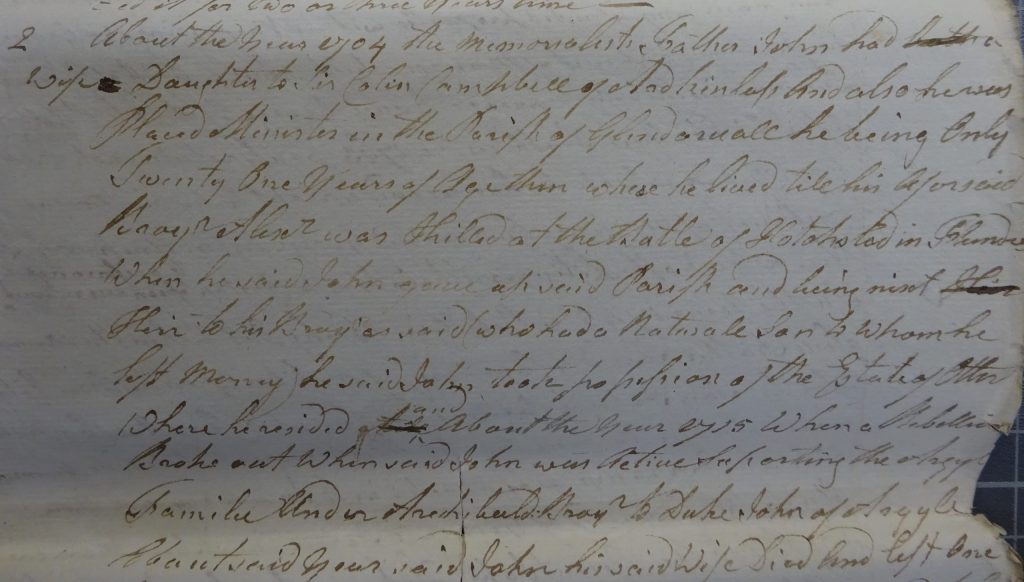 for two or three years time —
2 About the Year 1704 the Memorialists Father John had a
Wife Daughter to Sir Colin Campbell of Ardkinlass And also he was
Placed Minister in the Parish of Glendaruall he being Only
Twenty One Years of Age then where he lived till his aforesaid
Broyr Alexr was Killed at the Batle of Hotchsted in
When he said John gave up said Parish and being nixt
Heir to his Broyr as said (who had a Naturall Son to whom he
left Money) he said John took possession of the Estate of Otter
Where he resided and About the Year 1715 When a Rebellion
Broke out When said John was Active Suporting the Argyll
Familie Under Archibald Broyr to Duke John of Argyle
About said Year said John his said Wife Died And left One